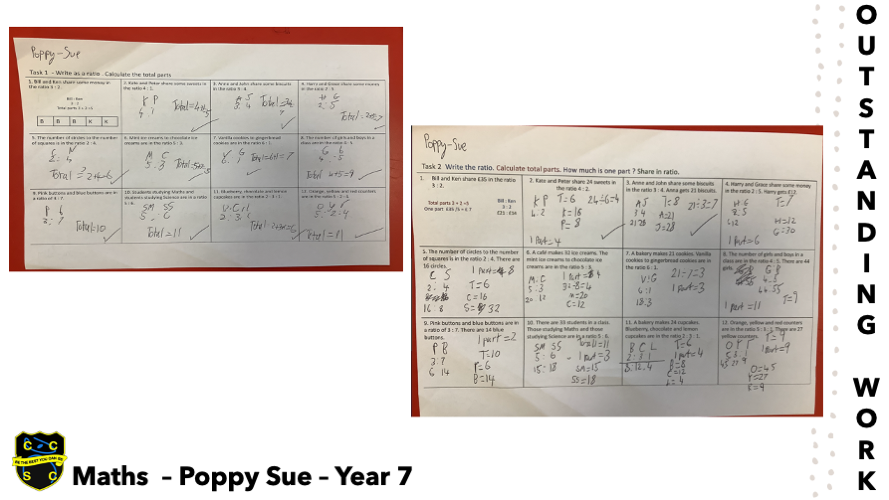 OUTSTANDING WORK
Poppy-Sue
Task 1 - Write as a ratio . Calculate the total parts
1. Bill and Ken share some money in
the ratio 3 : 2.
Bill : Ken
3 : 2
Total parts 3 + 2 =5
B B B K K
2. Kate and Peter share some sweets in
the ratio 4 : 1.
K P
4 1
3. Anne and John share some biscuits
in the ratio 3 : 4.
A J
3 4
4. Harry and Grace share some money
in the ratio 2 : 5.
H G
2 : 5
5. The number of circles to the number
of squares is in the ratio 2 : 4.
6. Mint ice creams to chocolate ice
creams are in the ratio 5 : 3.
M C
5 : 3
7. Vanilla cookies to gingerbread
cookies are in the ratio 6 : 1.
V G
Total=6+1=7
8. The number of girls and boys in a
class are in the ratio 4 : 5.
Total 4+5=9
9. Pink buttons and blue buttons are in
a ratio of 3 : 7.
Total=10
10. Students studying Maths and
students studying Science are in a ratio
5 : 6.
SM SS
5 : 6
Total=11
11. Blueberry, chocolate and lemon
cupcakes are in the ratio 2 : 3 : 1.
12. Orange, yellow and red counters
are in the ratio 5 : 2 : 4.
Total = 11
Poppy-Sue
Task 2 Write the ratio. Calculate total parts. How much is one part ? Share in ratio.
1. Bill and Ken share £35 in the ratio
3 : 2.
Bill : Ken
3 : 2
Total parts 3 + 2 =5
One part £35 /5 = £ 7
£21 : £14
2. Kate and Peter share 24 sweets in
the ratio 4 : 2.
K P T=6 24÷6=4
4 : 2 K=16
P= 8
1 Part=4
3. Anne and John share some biscuits
in the ratio 3 : 4. Anna gets 21 biscuits.
A J T=8 21÷3=7
3 4 A=21
21 28 J=28
4. Harry and Grace share some money
in the ratio 2 : 5. Harry gets £12.
H G T=7
2 : 5
H=12
G=30
1 Part=6
5. The number of circles to the number
of squares is in the ratio 2 : 4. There are
16 circles.
C S 1 part=8
2 : 4 T=6
C=16
16 : 8 S= 32
6. A café makes 32 ice creams. The
mint ice creams to chocolate ice
creams are in the ratio 5 : 3.
M:C 1 Part = 4
5 : 3 32÷8=4
20 : 12 M=20
C=12
7. A bakery makes 21 cookies. Vanilla
cookies to gingerbread cookies are in
the ratio 6 : 1.
V:G 21÷7=3
6 : 1 1 part=3
18:3
8. The number of girls and boys in a
class are in the ratio 4 : 5. There are 44
girls.
G B
4 : 5
44 : 55
T=9
1 part =11
9. Pink buttons and blue buttons are in
a ratio of 3 : 7. There are 14 blue
buttons.
1 part=2
P B
3:7 T=10
6 14 P=6
B=14
10. There are 33 students in a class.
Those studying Maths and those
studying Science are in a ratio 5 : 6.
SM SS
5 : 6 - 1 Part=3
15 : 18 SM=15
SS=18
11. A bakery makes 24 cupcakes.
Blueberry, chocolate and lemon
cupcakes are in the ratio 2 : 3 : 1.
B C L T=6
2 : 3 : 1 1 part=4
8:12:4 B=8
C=12
L=4
12. Orange, yellow and red counters
are in the ratio 5 : 3 : 1. There are 27
yellow counters.
T=9
5 3 1 1 Part=9
45 27 9
O=45
Y=27
R=9
C C
BE THE BEST YOU CAN BE
S C
Maths - Poppy Sue – Year 7